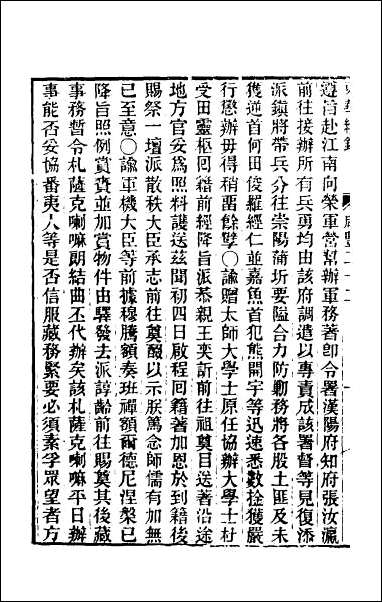 遵旨赴江南向榮軍營幫辦軍務著卽令署漢陽府知府張汝瀛
前往接辦所有兵勇均由該府調遣以專責成該署督等見復添
派鎮將帶兵分往崇陽蒲圻要隘合力防勦務將各股土匪及未
獲逆首何田俊羅經仁並嘉魚首犯熊開宇等迅速悉數捦獲嚴
行懲辦毋得稍畱餘孽〇諭贈太師大學士原任協辦大學士杜
受田靈柩回籍前經降旨派恭親王奕訢前往祖奠目送著沿途
地方官妥爲照料護送茲聞初四日啟程回籍著加恩於到籍後
賜祭一壇派散秩大臣承志前往奠醊以示朕篤念師儒有加無
已至意〇諭軍機大臣等前據穆騰額奏班禪額爾德尼涅槃已
降旨照例賞賚並加賞物件由驛發去派諄齡前往賜奠其後藏
事務暫令札薩克喇嘛朗結曲丕代辦矣該札薩克喇嘛平日辦
事能否妥協番夷人等是否信服藏務緊要必須素孚眾望者方